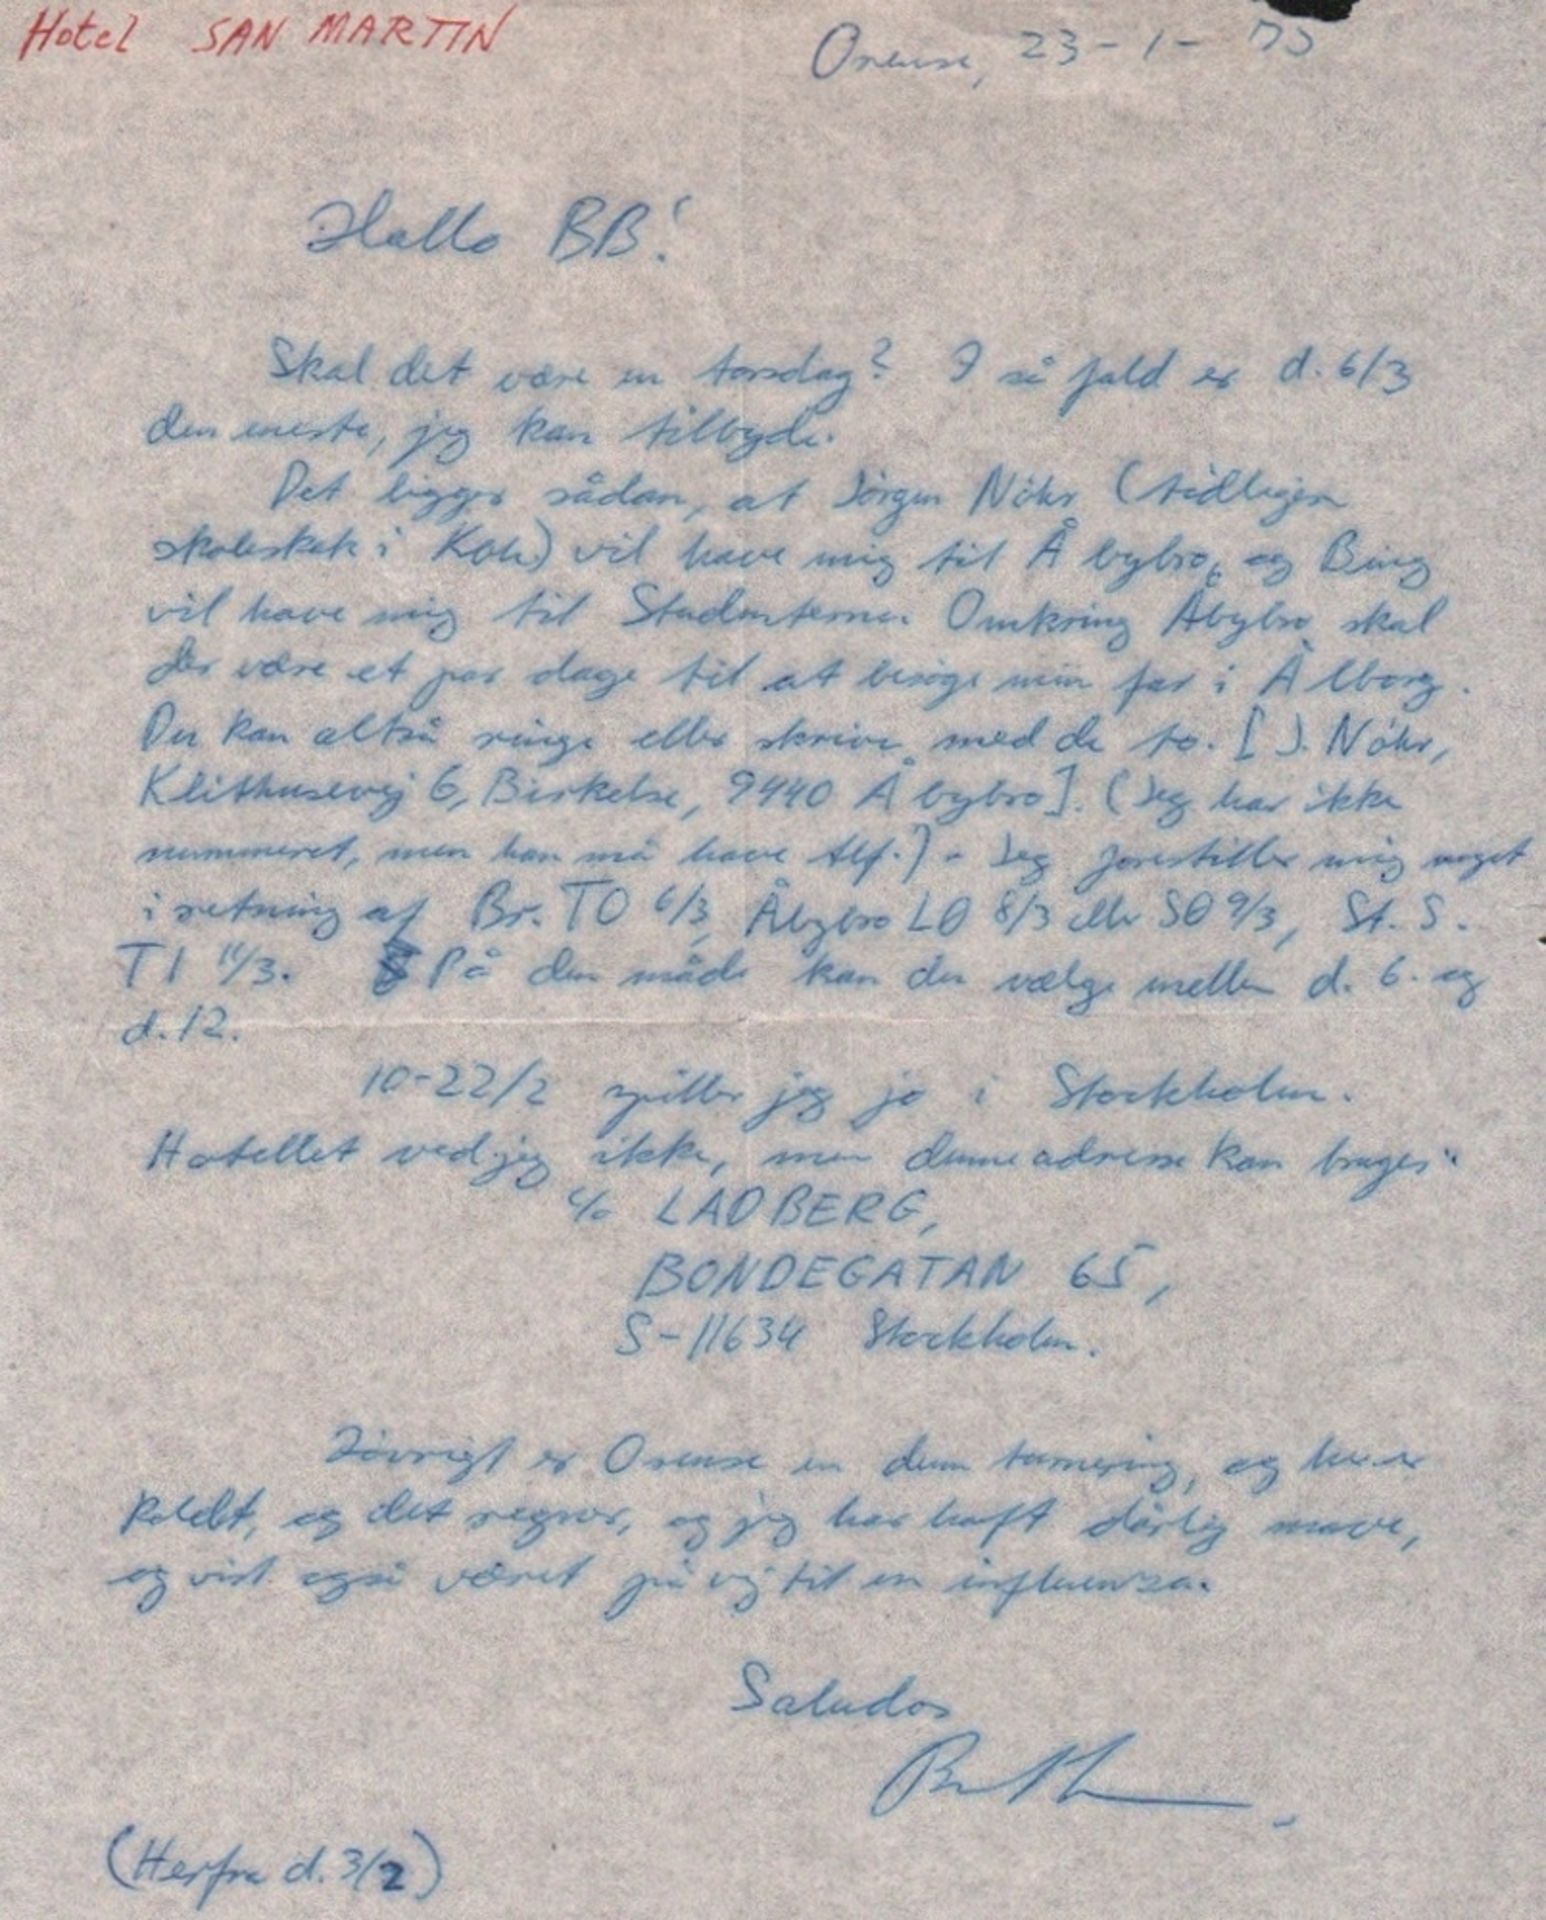 Hotel SAN MARTIN
Orense, 23-1-75
Hallo BB!
Skal det være en torsdag? I så fald er d. 6/3
den eneste, jeg kan tilbyde.
Det ligger sådan, at Jörgen Nöhr (tidligere
skoleskak i Kbh.) vil have mig til Åbybro, og Bing
vil have mig til Studenterne. Omkring Åbybro skal
der være et par dage til at besöge min far i Ålborg.
Du kan altså ringe eller skrive med de to. [J. Nöhr,
Klithusevej 6, Birkelse, 9440 Åbybro]. (Jeg har ikke
nummeret, men han må have tlf.) - Jeg forestiller mig noget
i retning af Br. TO 6/3, Åbybro LÖ 8/3 eller SÖ 9/3, St. S.
TI 11/3. På den måde kan du vælge mellem d. 6. og
d. 12.
10-22/2 spiller jeg jo i Stockholm.
Hotellet ved jeg ikke, men denne adresse kan bruges:
c/o LADBERG,
BONDEGATAN 65,
S-11634 Stockholm.
Iövrigt er Orense en dum turnering, og her er
koldt, og det regner, og jeg har haft dårlig mave,
og vist også været på vej til en influenza.
Saludos
(Herfra d. 3/2)